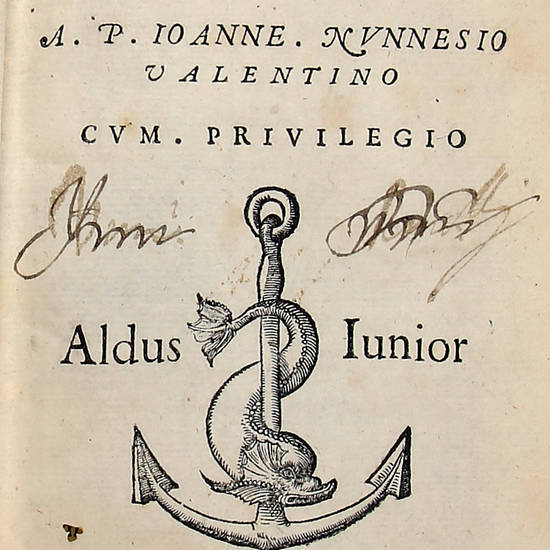 A. P. IOANNE. NVNNESIO
VALENTINO
CVM. PRIVILEGIO
Aldus Iunior